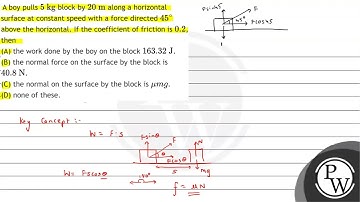 A boy pulls 5 kg block by 20 m along a horizontal
surface at constant speed with a force directed 45°
above the horizontal. If the coefficient of friction is 0.2,
then
(A) the work done by the boy on the block 163.32 J.
(B) the normal force on the surface by the block is
40.8 N.
(C) the normal on the surface by the block is μmg.
(D) none of these.
F
45°
Fcos45
Key Concept :-
W = F·S
Fsinθ
F
N
θ
Fcosθ
S
mg
W = Fscosθ
f = μN
P
W